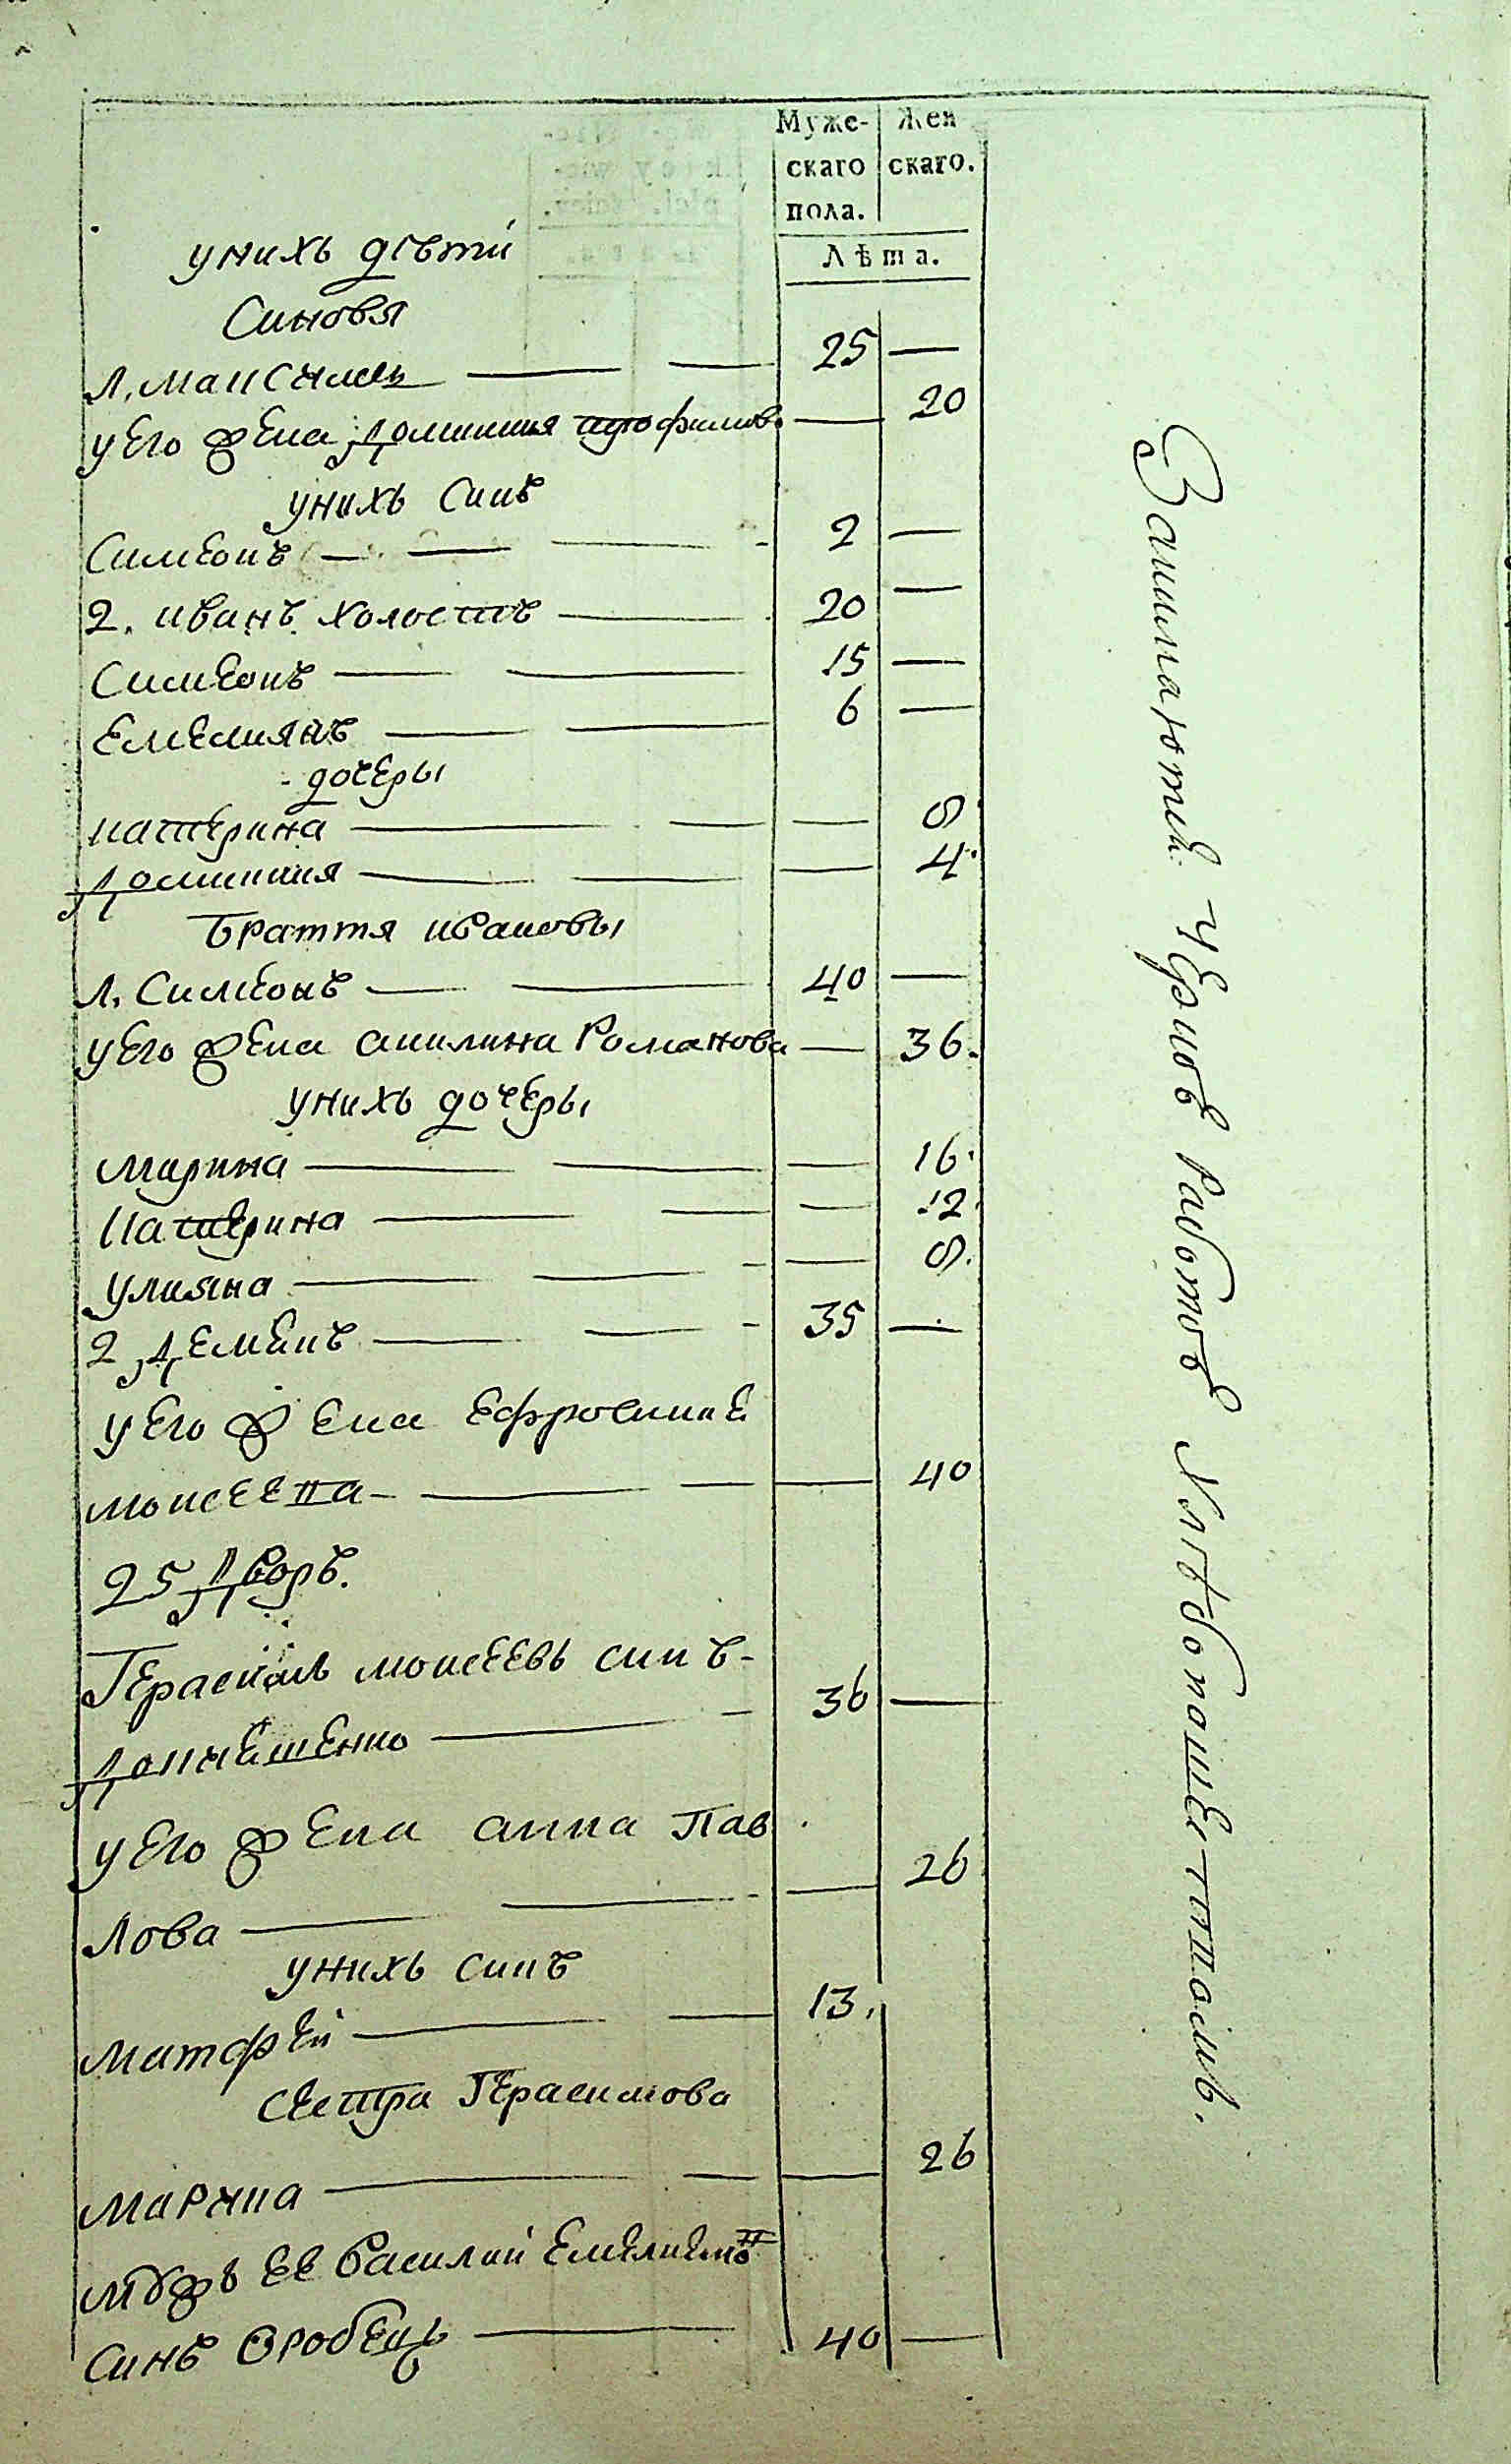 Муже- Жен
скаго скаго.
пола.
Лѣта.
унихъ дѣти
Синовя
1, максимъ 25
уего жена Домникия трофимова 20
унихъ синъ
Симеонъ 2
2. иванъ холостъ 20
Симеонъ 15
Емелиянъ 6
дочеры
катерина 8
Домникия 4
Братя ивановы
1, Симеонъ 40
уего жена акилина Романова 36.
унихъ дочеры
Марина 16
Катерина 12
улияна 8.
2 Деменъ 35
уего жена Ефросиние
моисеева 40
25 Дворъ.
Герасимъ моисеевъ синъ
36
уего жена анна Пав
лова 26
унихъ синъ
матфей 13.
сестра Герасимова
марина 26
мужъ ее василий Емелиеновъ
синъ вробецъ 40
Занимаютсе. Черное работое Хлѣбопашетвомъ.